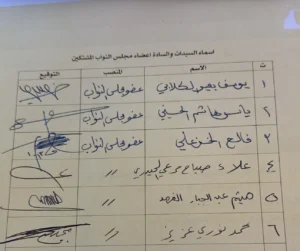 اسماء السيدات والسادة اعضاء مجلس النواب المشتكين
ت الاسم المنصب التوقيع
١ يوسف بعيو الكلابي عضو مجلس النواب
٢ ياسر هاشم الحسيني عضو مجلس النواب
٣ فالح الخزعلي عضو مجلس النواب
٤ علاء صباح "
٥ هيثم عبد الجبار الفهد "
٦ محمد نوري عزيز "